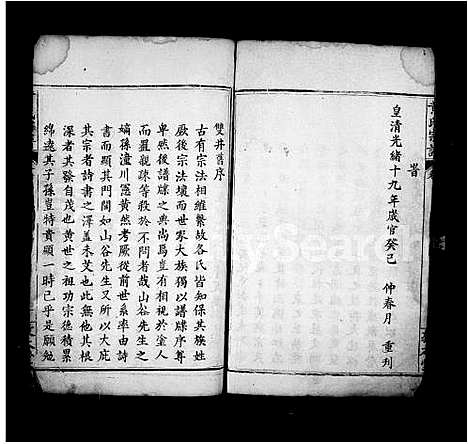 首
皇清光緒十九年歲宮癸巳 仲春月 重刋
雙井舊序
古有宗法相維繫故各氏皆知保其族姓
厥後宗法壞而世家大族獨以譜牒序尊
卑然後譜牒之尚爲豈有弗相親愛至人
而罹親疎等殺於不問者哉山谷先生之
嫡孫潼川愿黃然考厥從前世系率由詩
書而顯其門閭如山谷先生又所以大庇
其宗者詩書之澤盖未艾也此無他其根
深者其發自茂也黃世之祖功宗德積累
綿遠其子孫豈特貴顯一時已乎是願勉